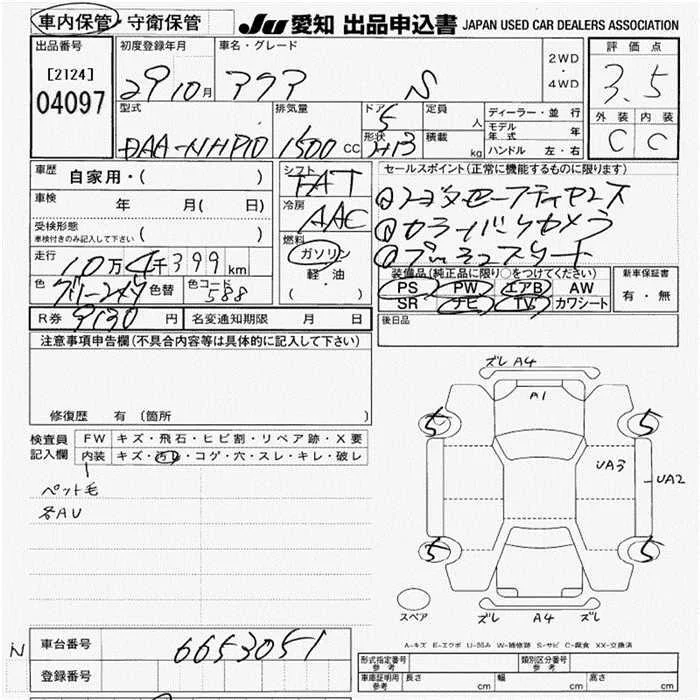 車内保管・守衛保管
JU 愛知 出品申込書 JAPAN USED CAR DEALERS ASSOCIATION
出品番号
[2124]
04097
初度登録年月
29 10月
車名・グレード
アクア S
2WD
・
4WD
評価点
3.5
外装 内装
C C
型式
DAA-NHP10
排気量
1500 CC
ドア
5
形状
H13
定員
人
積載
kg
ディーラー・並行
モデル年式 年
ハンドル 左・右
車歴
自家用・( )
車検 年 月( 日)
受検形態
車検付きのみ記入して下さい ( )
走行
10万 4千399km
色
グリーンメタ
色替
色コード
588
R券 9130 円
名変通知期限 月 日
シフト
FAT
冷房
AAC
燃料
ガソリン
軽・油
( ・ )
セールスポイント(正常に機能するものに限ります)
①トヨタセーフティセンス
②カラーバックカメラ
③プッシュスタート
装備品(純正品に限り○をつけてください)
PS PW エアB AW
SR ナビ TV カワシート
新車保証書
有・無
後日品
注意事項申告欄(不具合内容等は具体的に記入して下さい)
修復歴 有(箇所 )
検査員記入欄
FW キズ・飛石・ヒビ割・リペア跡・X要
内装 キズ・汚れ・コゲ・穴・スレ・キレ・破レ
ペット毛
各AU
ズレ A4
A1
5
5
UA3
UA2
5
5
スペア
ズレ A4 ズレ
A-キズ E-エクボ U-凹み W-補修跡 S-サビ C-腐食 XX-交換済
N
車台番号
6653051
登録番号
形式指定番号 参考
類別区分番号 参考
車庫証明用 参考
長さ cm 幅 cm 高さ cm